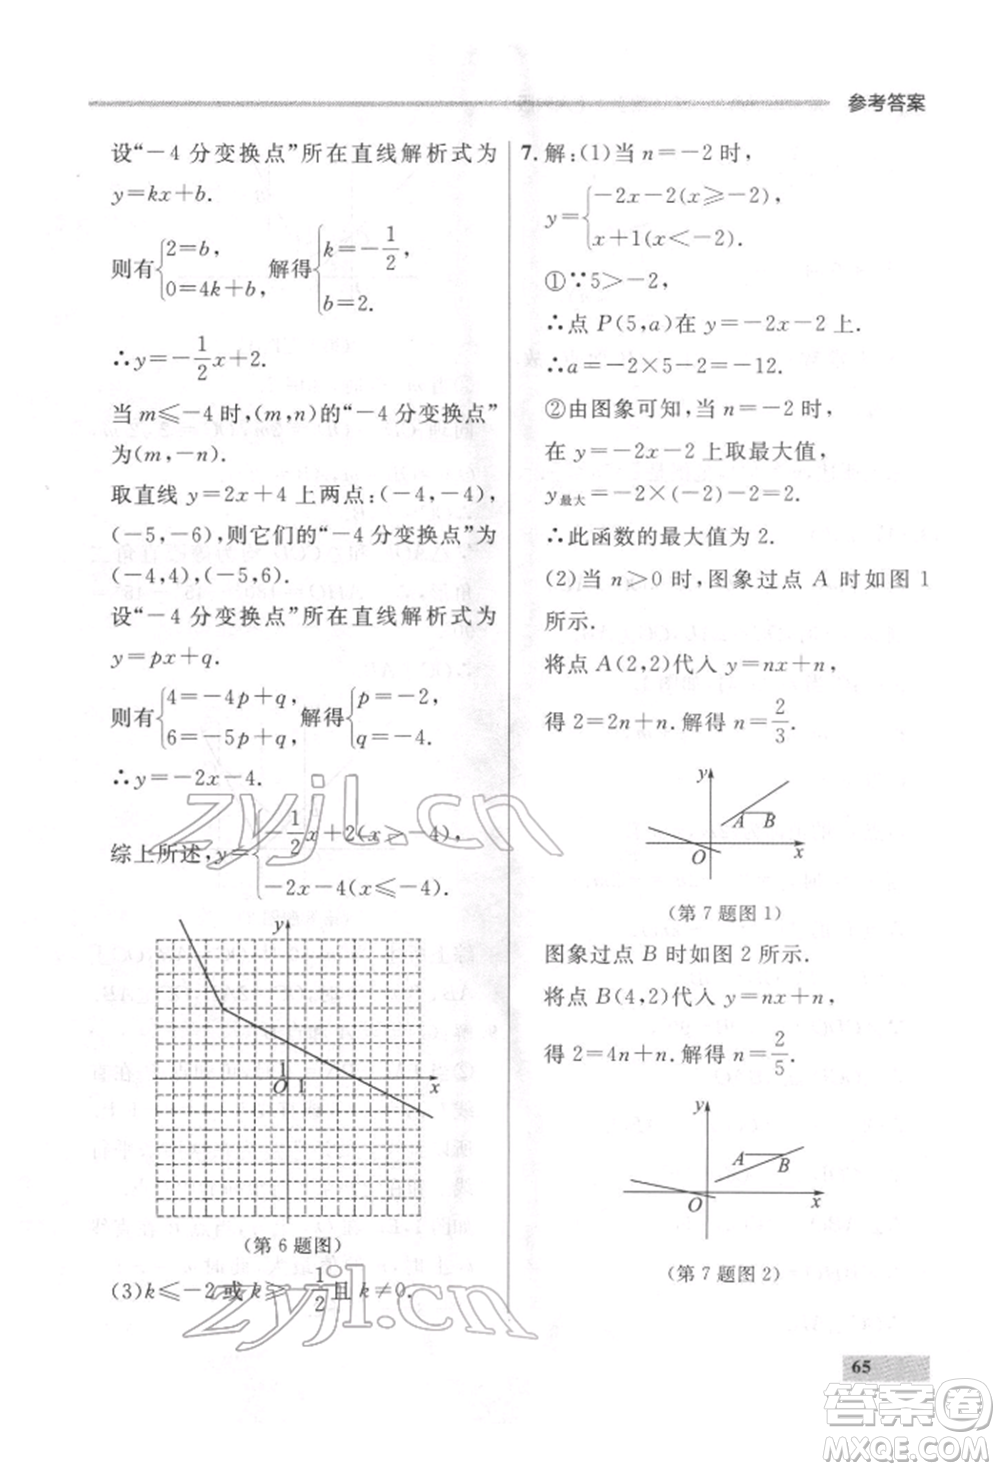 参考答案
设“－4分变换点”所在直线解析式为
y=kx+b.
则有{2=b, 0=4k+b, 解得{k=-1/2, b=2.
∴y=-1/2x+2.
当m≤-4时,(m,n)的“－4分变换点”
为(m,-n).
取直线y=2x+4上两点:(-4,-4),
(-5,-6),则它们的“－4分变换点”为
(-4,4),(-5,6).
设“－4分变换点”所在直线解析式为
y=px+q.
则有{4=-4p+q, 6=-5p+q, 解得{p=-2, q=-4.
∴y=-2x-4.
综上所述,y={-1/2x+2(x≥-4), -2x-4(x≤-4).
y
1
O 1 x
(第6题图)
(3)k≤-2或k≥-1/2且k≠0.
7. 解:(1)当n=-2时,
y={-2x-2(x≥-2), x+1(x<-2).
①∵5>-2,
∴点P(5,a)在y=-2x-2上.
∴a=-2×5-2=-12.
②由图象可知,当x=-2时,
在y=-2x-2上取最大值,
y最大=-2×(-2)-2=2.
∴此函数的最大值为2.
(2)当n>0时,图象过点A时如图1
所示.
将点A(2,2)代入y=nx+n,
得2=2n+n.解得n=2/3.
y
A B
O x
(第7题图1)
图象过点B时如图2所示.
将点B(4,2)代入y=nx+n,
得2=4n+n.解得n=2/5.
y
A B
O x
(第7题图2)
65
zyjl.cn
zyjl.cn
答案圈
MXQE.COM